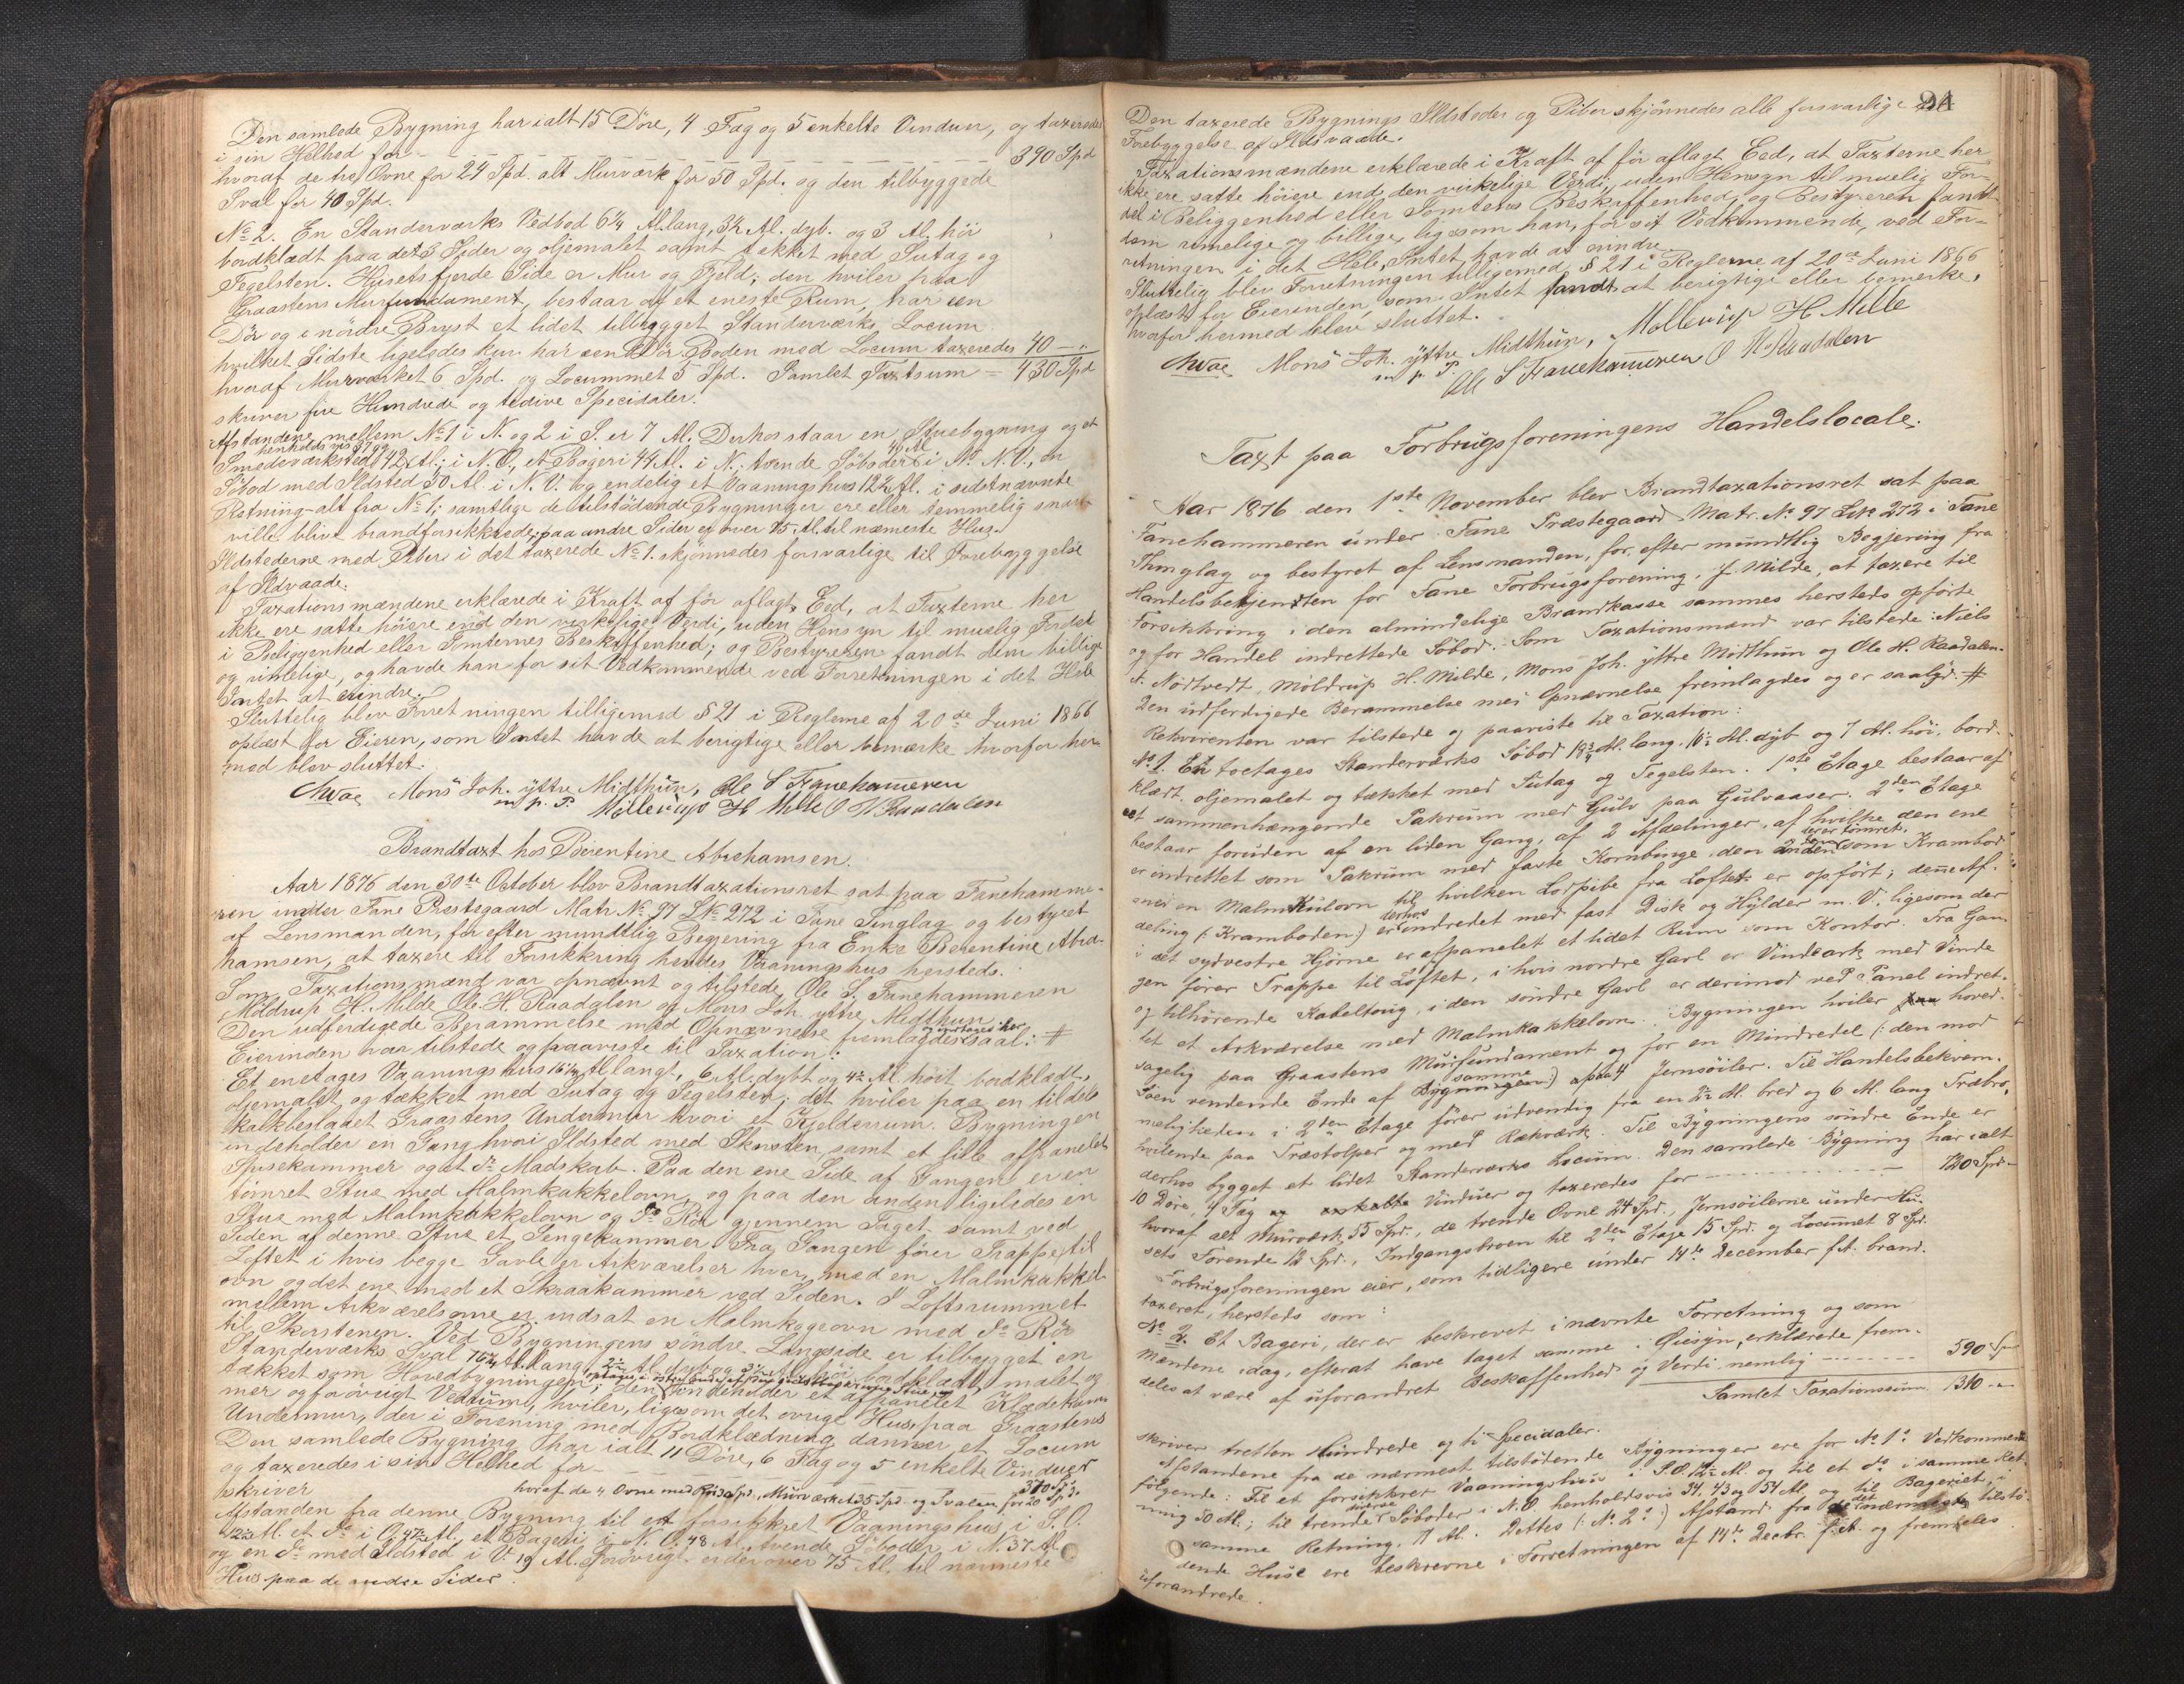 Den samlede Bygning har ialt 15 Döre, 4 Fag og 5 enkelte Vinduer, og taxeredes
i sin Helhed for - - - - 390 Spd
hvoraf de tre Ovne for 24 Spd. alt Murværk for 50 Spd. og den tilbyggede
Sval for 40 Spd.
No 2. En Standerværks Vedbod 6¼ Al. lang, 3½ Al. dyb. og 3 Al. høi
bordklædt paa dets 3 Sider og oljemalet samt tækket med Sutag og
Tegelsten. Husets fjerde Side er Mur og Fjeld; den hviler paa
Graastens Murfundament, bestaar af et eneste Rum, har een
Dör og i nordre Bryst et lidet tilbygget Standerværks Locum
hvilket Sidste ligeledes kun har een Dör. Boden med Locum taxeredes 40 - "
hvoraf Murværket 6 Spd. og Locummet 5 Spd. Samlet Taxtsum = 430 Spd
skriver fire Hundrede og tredive Specidaler.
Afstandene mellem No 1 i N. og 2 i S. er 7 Al. Derhos staar en Stuebygning og et
henholdsvis 37 og 40 Al
Smedeværksted 42 Al. i N. O., et Bageri 44 Al. i N., tvende Söboder i N. N. V., en
Söbod med Ildsted 50 Al. i N. V. og endelig et Vaaningshus 12½ Al. i sidstnævnte
Retning alt fra No 1; samtlige de tilstödende Bygninger ere eller temmelig snart
ville blive brandforsikkrede; paa andre Sider er over 75 Al. til næmeste Hus.
Ildstederne med Piber i det taxerede No 1. skjönnedes forsvarlige til Forebyggelse
af Ildvaade.
Taxationsmændene erklærede i Kraft af för aflagt Eed, at Taxterne her
ikke ere satte höiere end den virkelige Verdi, uden Hensyn til muelig Fordel
i Beliggenhed eller Tomternes Beskaffenhed; og Bestyreren fandt dem billige
og rimelige, og havde han for sit Vedkommende ved Forretningen i det Hele
Intet at erindre.
Sluttelig blev Forretningen tilligemed § 21 i Reglerne af 20de Juni 1866
oplæst for Eieren, som Intet havde at berigtige eller bemærke hvorfor her
med blev sluttet.
Mons Joh. yttre Midthun, Ole S Fanehameren
m. p. P. Möllerup H Milde O H. Raadalen
Brandtaxt hos Berentine Abrahamsen.
Aar 1876 den 30te October blev Brandtaxationsret sat paa Fanehamme-
ren under Fane Præstegaard Matr No 97 LNo 272 i Fane Tinglag og bestyret
af Lensmanden, for efter mundtlig Begjering fra Enke Berentine Abra-
hamsen, at taxere til Forsikkring hendes Vaaningshus hersteds.
Som Taxationsmænd var opnævnt og tilstede Ole S. Fanehammeren
Möldrup H. Milde Ole H. Raadalen og Mons Joh. yttre Midthun
Den udferdigede Berammelse med Opnævnelse fremlagdes og indtages her saal: #
Eierinden var tilstede og paaviste til Taxation:
Et enetages Vaaningshus 16¼ Al. langt, 6 Al. dybt og 4½ Al. höit bordklædt,
oljemalet og tækket med Sutag og Tegelsten; det hviler paa en tildels
kalkbeslaaet Graastens Undermur hvori et Kjelderrum. Bygningen
indeholder en Gang hvori Ildsted med Skorsten, samt et lille afpanelet
Spisekammer og et Do Madskab. Paa den ene Side af Gangen er en
tömret Stue med Malmkakkelovn, og paa den anden ligeledes en
Stue med Malmkakkelovn og Do Rör gjennem Taget samt ved
Siden af denne Stue et Sengekammer. Fra Gangen förer Trappe til
Loftet i hvis begge Gavle er Arkværelser hver med en Malmkakkel-
ovn og det ene med et Skraakammer ved Siden. I Loftsrummet
mellem Arkværelserne er indsat en Malmkogeovn med Do Rör
til Skorstenen. Ved Bygningens söndre Langside er tilbygget en
Standerværks Sval 15¾ Al. lang, 2½ Al. dyb og 3½ Al. höi, bordklædt, malet og
tækket som Hovedbygningen; den indeholder et afpanelet Klædekam-
mer og forövrigt Vedrum, hviler, ligesom det övrige Hus paa Graastens
Undermur, der i Forening med Bordklædning danner et Locum
Den samlede Bygning har ialt 11 Döre, 6 Fag og 5 enkelte Vinduer
og taxeredes i sin Helhed for - - - - 370 Spd.
skriver hvoraf de 4 Ovne med Rör 30 Spd., Murværket 35 Spd. og Svalen for 20 Spd.
Afstanden fra denne Bygning til et forsikkret Vaaningshus i S. O.
12½ Al. et Do i O. 47½ Al., et Bageri i N. O. 48 Al., tvende Söboder i N. 37 Al.
og en Do med Ildsted i V. 19 Al. Forövrigt er der over 75 Al. til nærmeste
Hus paa de andre Sider.
94
Den taxerede Bygnings Ildsteder og Piber skjönnedes alle forsvarlige til
Forebyggelse af Ildsvaade.
Taxationsmændene erklærede i Kraft af för aflagt Eed, at Taxterne her
ikke ere satte höiere end den virkelige Verdi, uden Hensyn til muelig For-
del i Beliggenhed eller Tomtens Beskaffenhed, og Bestyreren fandt
dem rimelige og billige, ligesom han, for sit Vedkommende, ved For-
retningen i det Hele, Intet havde at erindre.
Sluttelig blev Forretningen tilligemed § 21 i Reglerne af 20de Juni 1866
oplæst for Eierinden, som Intet fandt at berigtige eller bemerke,
hvorfor hermed blev sluttet.
Mons Joh. yttre Midthun, Möllerup H Milde
m. p. P. Ole S Fanehammeren O H. Raadalen
Taxt paa Forbrugsforeningens Handelslocale.
Aar 1876 den 1ste November blev Brandtaxationsret sat paa
Fanehammeren under Fane Præstegaard Matr. No 97 LNo 272 i Fane
Thinglag og bestyret af Lensmanden, for, efter mundtlig Begjering fra
Handelsbetjendten for Fane Forbrugsforening, J. Milde, at taxere til
Forsikkring i den almindelige Brandkasse sammes hersteds opförte
og for Handel indrettede Söbod. Som Taxationsmænd var tilstede: Niels
A. Nödtvedt, Möldrup H. Milde, Mons Joh. yttre Midthun og Ole H. Raadalen.
Den udferdigede Berammelse med Opnævnelse fremlagdes og er saalyd. #
Rekvirenten var tilstede og paaviste til Taxation:
No 1. En toetages Standerværks Söbod 18¾ Al. lang, 10½ Al. dyb og 7 Al. höi, bord-
klædt, oljemalet og tækket med Sutag og Tegelsten. 1ste Etage bestaar af
et sammenhængende Pakrum med Gulv paa Gulvaaser. 2den Etage
bestaar foruden af en liden Gang, af 2 Afdelinger, af hvilke den ene
er indrettet som Pakrum med faste Kornbinge, den anden som Krambod
der er tömret,
med en Malmkulovn til hvilken Lorpibe fra Loftet er opfört; denne Af-
deling (: Kramboden:) er derhos indredet med fast Disk og Hylder m. V. ligesom der
i det sydvestre Hjörne er afpanelet et lidet Rum som Kontor. Fra Gan-
gen förer Trappe til Loftet, i hvis nordre Gavl er Vindeark med Vinde
og tilhörende Kabeltoug, i den söndre Gavl er derimod ved Panel indret-
tet et Arkværelse med Malmkakkelovn. Bygningen hviler hoved-
sagelig paa Graastens Murfundament og for en Mindredel (: den mod
Söen vendende Ende af samme:) paa 4 Jernsöiler. Til Handelsbekvem-
meligheden i 2den Etage förer udvendig fra en 2½ Al. bred og 6 Al. lang Træbro,
hvilende paa Træstolper og med Rækværk. Til Bygningens söndre Ende er
derhos bygget et lidet Standerværks Locum. Den samlede Bygning har ialt
10 Döre, 4 Fag Vinduer og taxeredes for - - - - 720 Spd.
hvoraf alt Murværk 55 Spd., de trende Ovne 24 Spd., Jernsöilerne under Hu-
sets Forende 12 Spd., Indgangsbroen til 2den Etage 15 Spd. og Locummet 8 Spd.
Forbrugsforeningen eier, som tidligere under 14de December f. A. brand-
taxeret, hersteds som:
No 2. Et Bageri, der er beskrevet i nævnte Forretning og som
Mændene idag, efterat have taget samme i Öiesyn, erklærede frem-
deles at være af uforandret Beskaffenhed og Verdi nemlig - - - - 590 Spd
Samlet Taxationssum 1310 - "
skriver tretten Hundrede og ti Specidaler.
Afstandene fra de nærmest tilstödende Bygninger ere for No 1's Vedkommende
fölgende: Til et forsikkret Vaaningshus i S. O. 12½ Al. og til et Do i samme Ret-
ning 50 Al.; til trende diverse Söboder i N. O. henholdsvis 34, 43 og 54 Al. og til Bageriet, i
samme Retning, 11 Al. Dettes (: No 2's:) Afstand fra de nærmeste tilstö-
dende Huse ere beskrevne i Forretningen af 14de Decbr. f. A. og fremdeles
uforandrede.